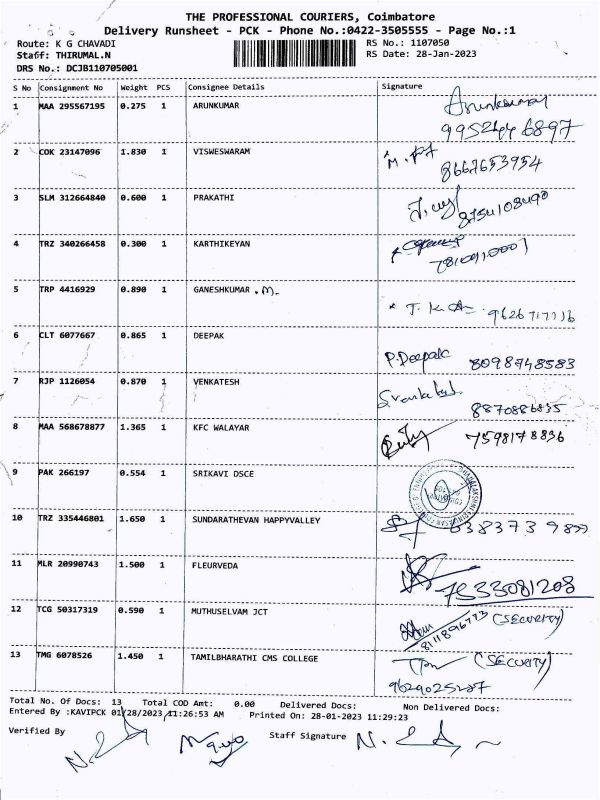 THE PROFESSIONAL COURIERS, Coimbatore
Delivery Runsheet - PCK - Phone No.:0422-3505555 - Page No.:1
Route: K G CHAVADI RS No.: 1107050
Staff: THIRUMAL.N RS Date: 28-Jan-2023
DRS No.: DCJB110705001
S No Consignment No Weight PCS Consignee Details Signature
1 MAA 295567195 0.275 1 ARUNKUMAR Arunkumar
2 COK 23147096 1.830 1 VISWESWARAM
8667653954
3 SLM 312664840 0.600 1 PRAKATHI
8754108490
4 TRZ 340266458 0.300 1 KARTHIKEYAN
5 TRP 4416929 0.890 1 GANESHKUMAR .M.
6 CLT 6077667 0.865 1 DEEPAK
P.Deepak 8098748583
7 RJP 1126054 0.870 1 VENKATESH
8870886835
8 MAA 568678877 1.365 1 KFC WALAYAR
7598178836
9 PAK 266197 0.554 1 SRIKAVI DSCE
10 TRZ 335446801 1.650 1 SUNDARATHEVAN HAPPYVALLEY
11 MLR 20990743 1.500 1 FLEURVEDA
7533081208
12 TCG 50317319 0.590 1 MUTHUSELVAM JCT
8111896773 (SECURITY)
13 TMG 6078526 1.450 1 TAMILBHARATHI CMS COLLEGE (SECURITY)
Total No. Of Docs: 13 Total COD Amt: 0.00 Delivered Docs: Non Delivered Docs:
Entered By :KAVIPCK 01/28/2023 11:26:53 AM Printed On: 28-01-2023 11:29:23
Verified By Staff Signature